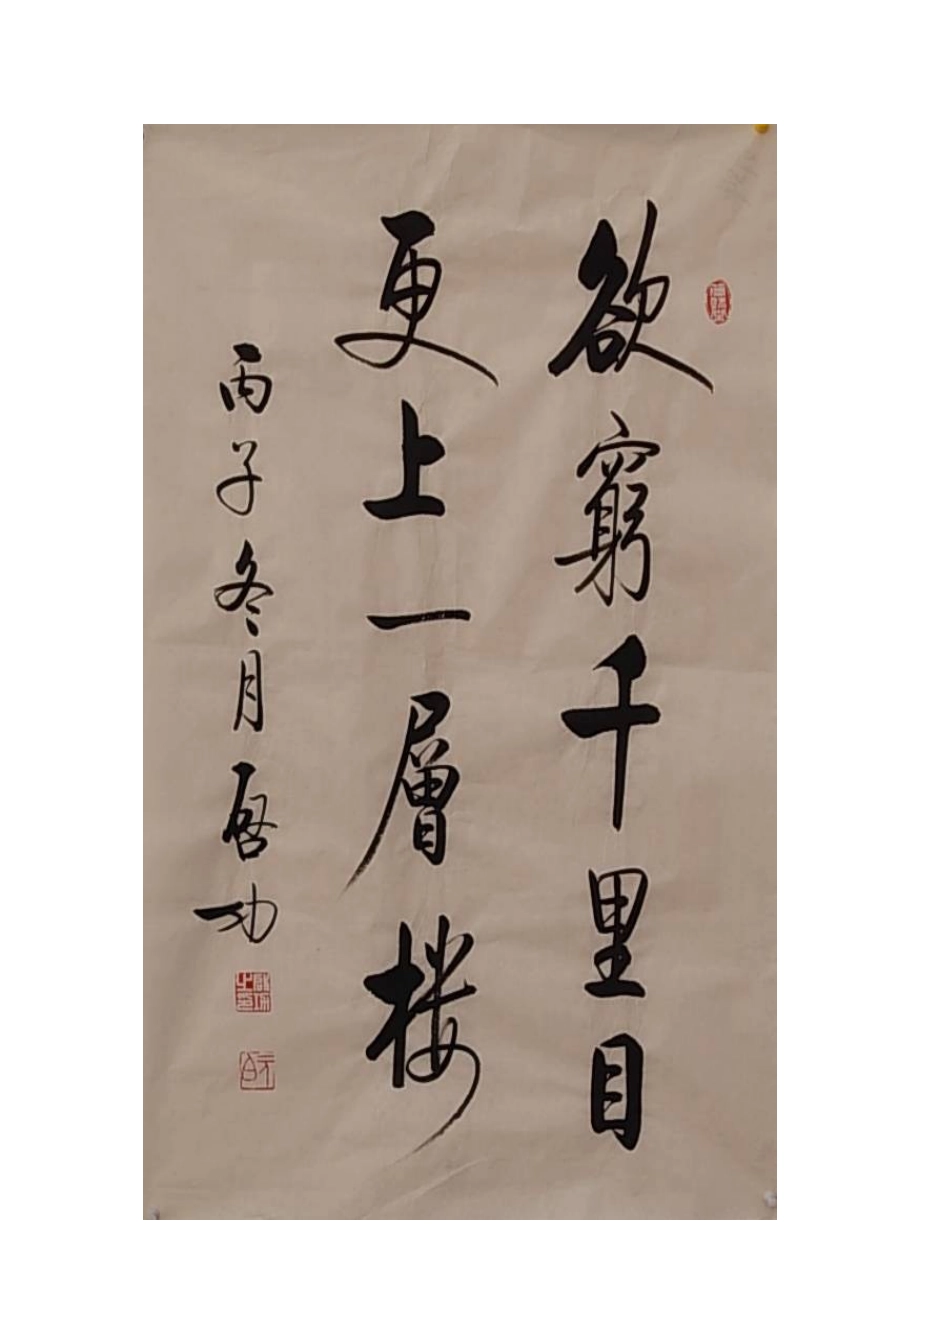 欲窮千里目
更上一層楼
丙子冬月啓功